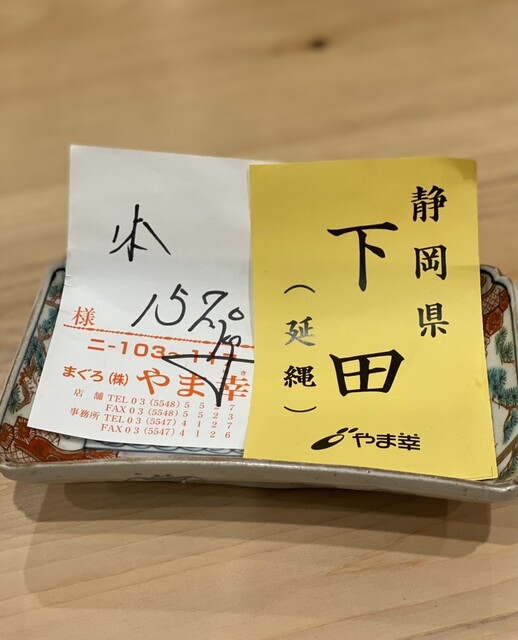 157.0
様
まぐろ(株) やま幸
店舗 TEL 03 (5548) 5527
FAX 03 (5548) 5523
事務所 TEL 03 (5547) 4127
FAX 03 (5547) 4126
静岡県
下田
(延縄)
やま幸